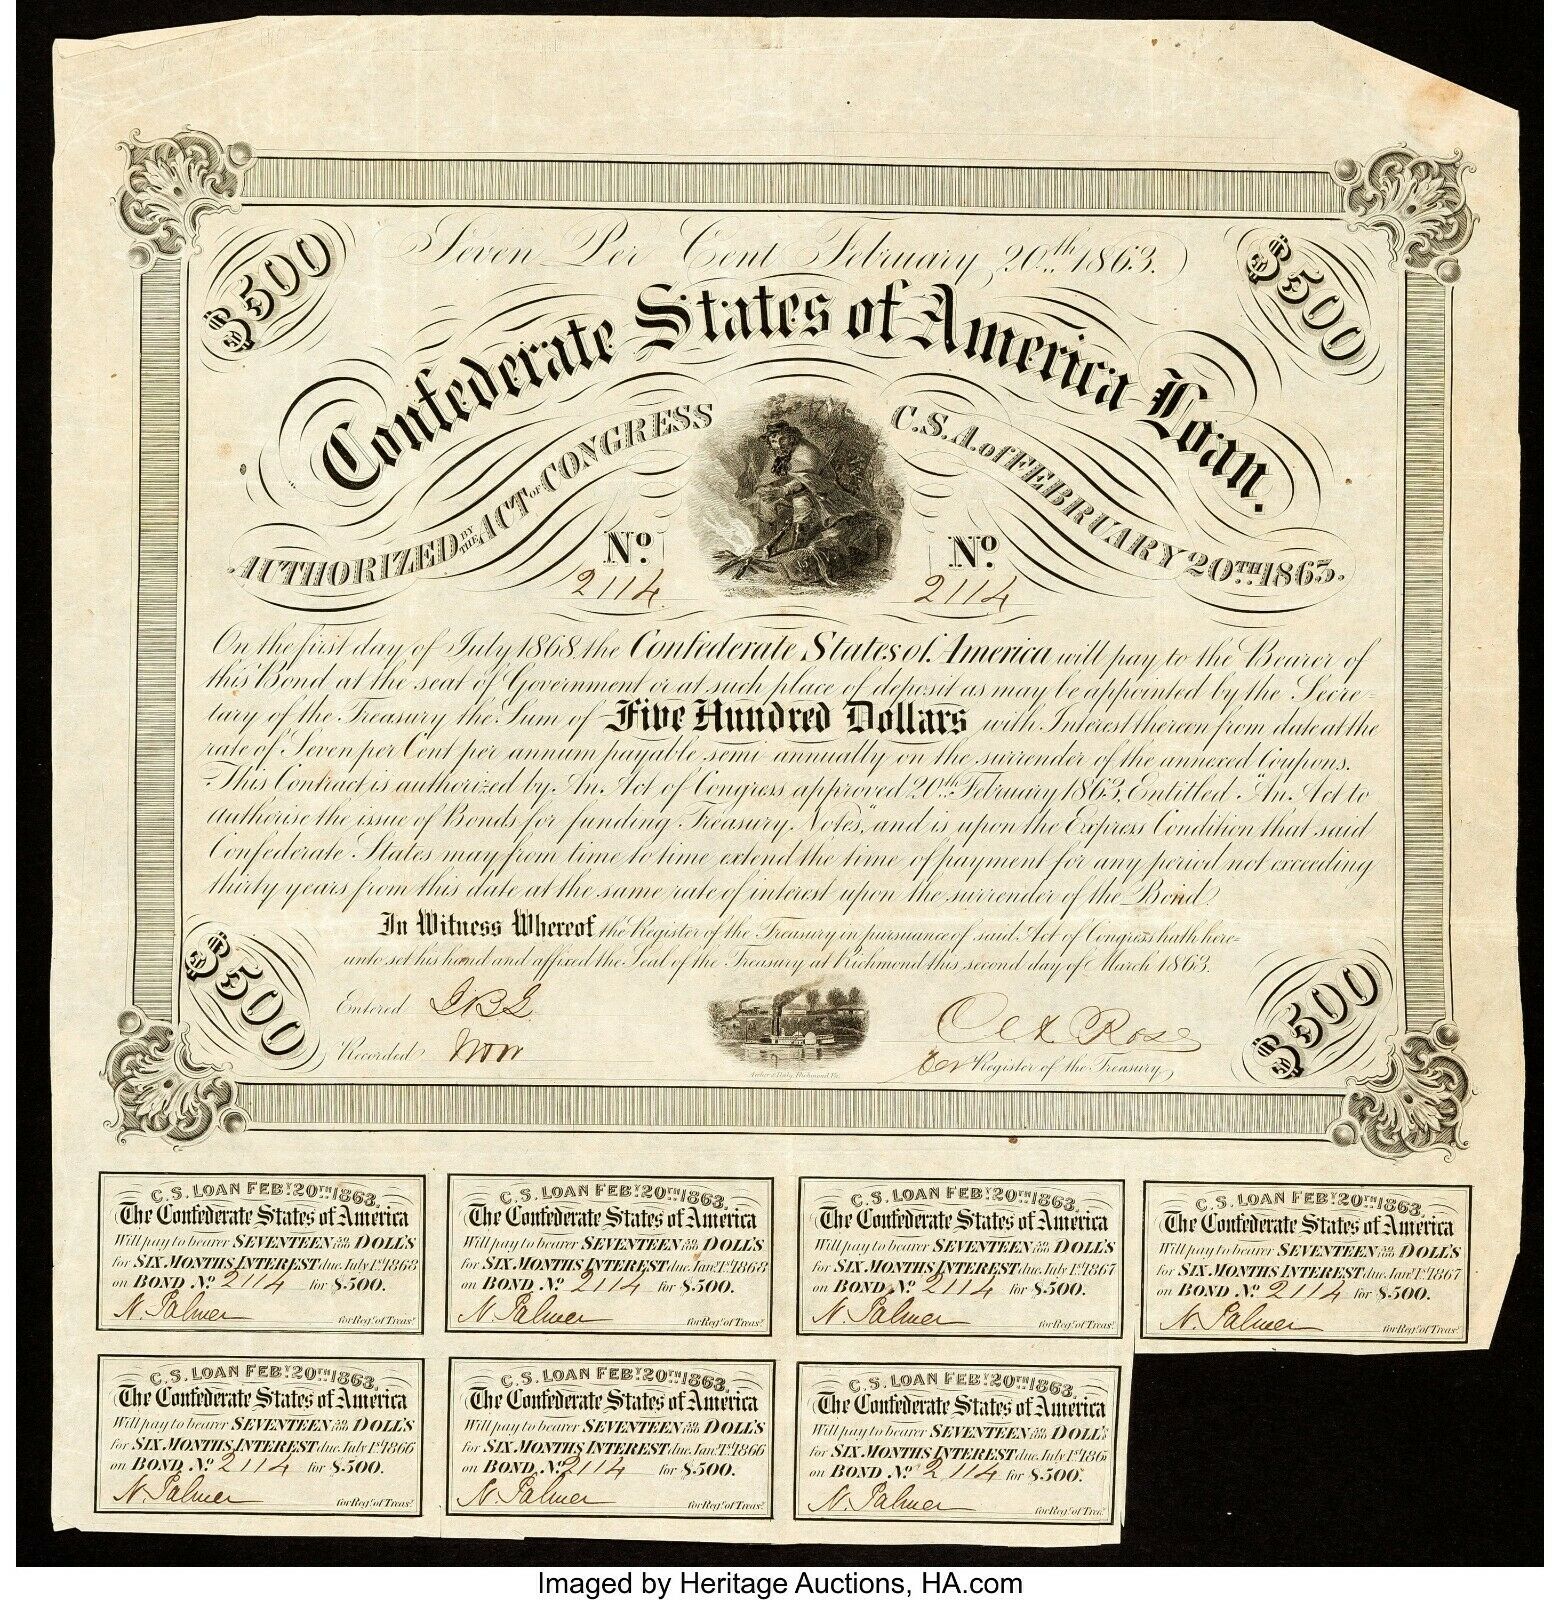 Seven Per Cent February 20th 1863.
$500
$500
Confederate States of America Loan.
AUTHORIZED BY THE ACT OF CONGRESS
C.S.A. of FEBRUARY 20TH 1863.
No. No.
2114 2114
On the first day of July 1868, the Confederate States of America will pay to the Bearer of
this Bond at the seat of Government or at such place of deposit as may be appointed by the Secre=
tary of the Treasury the Sum of Five Hundred Dollars with Interest thereon from date at the
rate of Seven per Cent per annum payable semi annually on the surrender of the annexed Coupons.
This Contract is authorized by An Act of Congress approved 20th February 1863, Entitled "An Act to
authorise the issue of Bonds for funding Treasury Notes", and is upon the Express Condition that said
Confederate States may from time to time extend the time of payment for any period not exceeding
thirty years from this date at the same rate of interest upon the surrender of the Bond
In Witness Whereof the Register of the Treasury in pursuance of said Act of Congress hath here=
unto set his hand and affixed the Seal of the Treasury at Richmond this second day of March 1863.
$500
$500
Entered
Recorded
Rose
Register of the Treasury
Richmond, Va.
C.S. LOAN FEBY. 20TH 1863.
The Confederate States of America
Will pay to bearer SEVENTEEN 50/100 DOLL'S
for SIX MONTHS INTEREST due July 1st 1868
on BOND No. 2114 for $500.
N. Palmer
for Regr. of Treasy
C.S. LOAN FEBY. 20TH 1863.
The Confederate States of America
Will pay to bearer SEVENTEEN 50/100 DOLL'S
for SIX MONTHS INTEREST due Jan. 1st 1868
on BOND No. 2114 for $500.
N. Palmer
for Regr. of Treasy
C.S. LOAN FEBY. 20TH 1863.
The Confederate States of America
Will pay to bearer SEVENTEEN 50/100 DOLL'S
for SIX MONTHS INTEREST due July 1st 1867
on BOND No. 2114 for $500.
N. Palmer
for Regr. of Treasy
C.S. LOAN FEBY. 20TH 1863.
The Confederate States of America
Will pay to bearer SEVENTEEN 50/100 DOLL'S
for SIX MONTHS INTEREST due Jan. 1st 1867
on BOND No. 2114 for $500.
N. Palmer
for Regr. of Treasy
C.S. LOAN FEBY. 20TH 1863.
The Confederate States of America
Will pay to bearer SEVENTEEN 50/100 DOLL'S
for SIX MONTHS INTEREST due July 1st 1866
on BOND No. 2114 for $500.
N. Palmer
for Regr. of Treasy
C.S. LOAN FEBY. 20TH 1863.
The Confederate States of America
Will pay to bearer SEVENTEEN 50/100 DOLL'S
for SIX MONTHS INTEREST due Jan. 1st 1866
on BOND No. 2114 for $500.
N. Palmer
for Regr. of Treasy
C.S. LOAN FEBY. 20TH 1863.
The Confederate States of America
Will pay to bearer SEVENTEEN 50/100 DOLL'S
for SIX MONTHS INTEREST due July 1st 186
on BOND No. 2114 for $500.
N. Palmer
for Regr. of Trea
Imaged by Heritage Auctions, HA.com